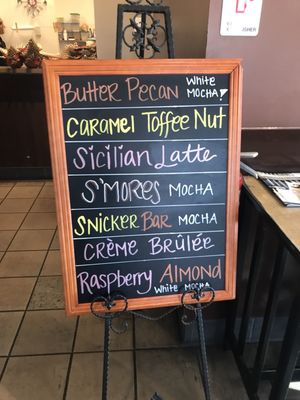 Butter Pecan White Mocha!
Caramel Toffee Nut
Sicilian Latte
S'mores Mocha
Snicker Bar Mocha
Crème Brûlée
Raspberry Almond
White Mocha